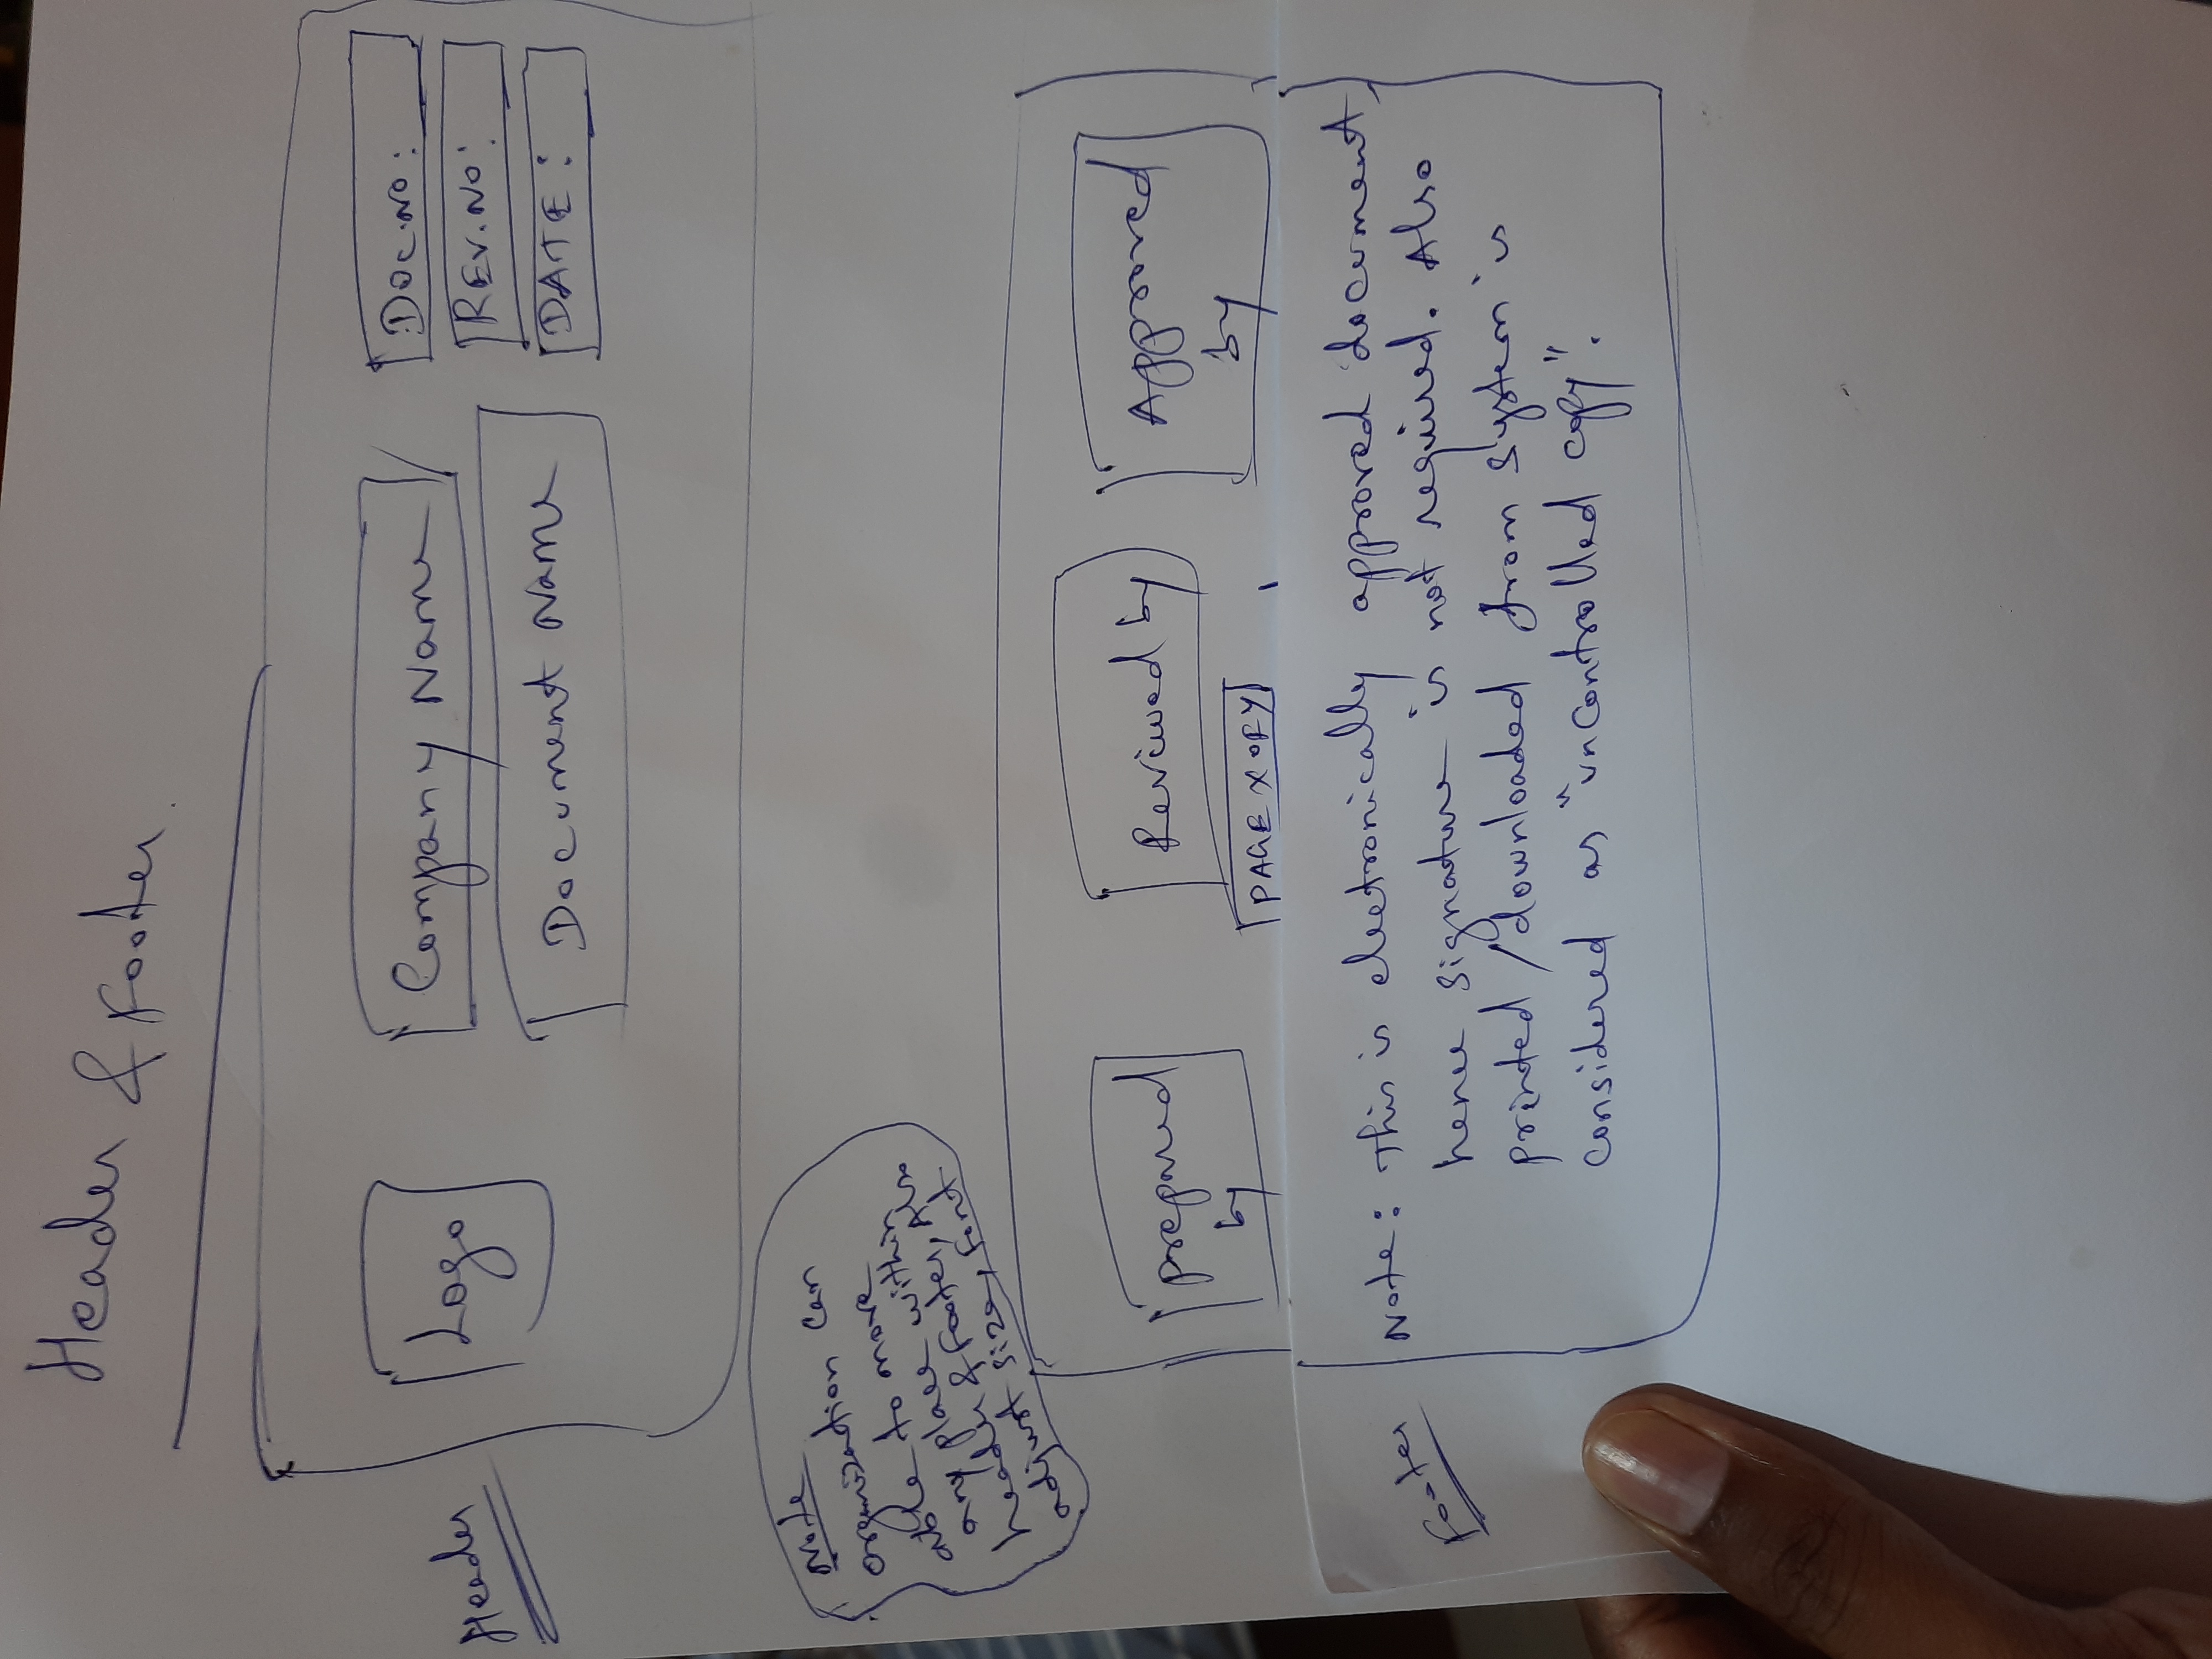 Header & Footer.
Header
Logo
Company Name
Document Name
DOC.NO:
REV.NO:
DATE:
Note
organization can
able to move
any place within
header & Footer, Also
adjust size, Font
prepared
by
Reviwed by
Approved
by
PAGE X OF Y
Footer
Note: This is electronically approved document,
hence signature is not required. Also
printed/downloaded from system is
considered as "uncontrolled copy".